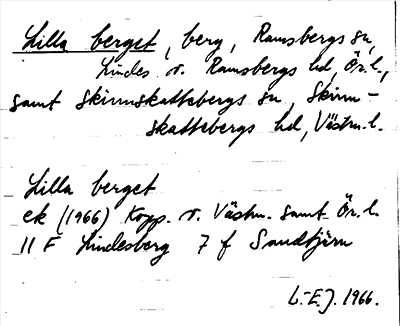 Lilla berget, berg, Ramsbergs sn,
Lindes o. Ramsbergs hd, Ör.l.,
samt Skinnskattebergs sn, Skinn-
skattebergs hd, Västm.l.
Lilla berget
ek (1966) Kopp. o. Västm. samt Ör.l.
11 F Lindesberg 7 f Sandtjärn
L.-E.J. 1966.